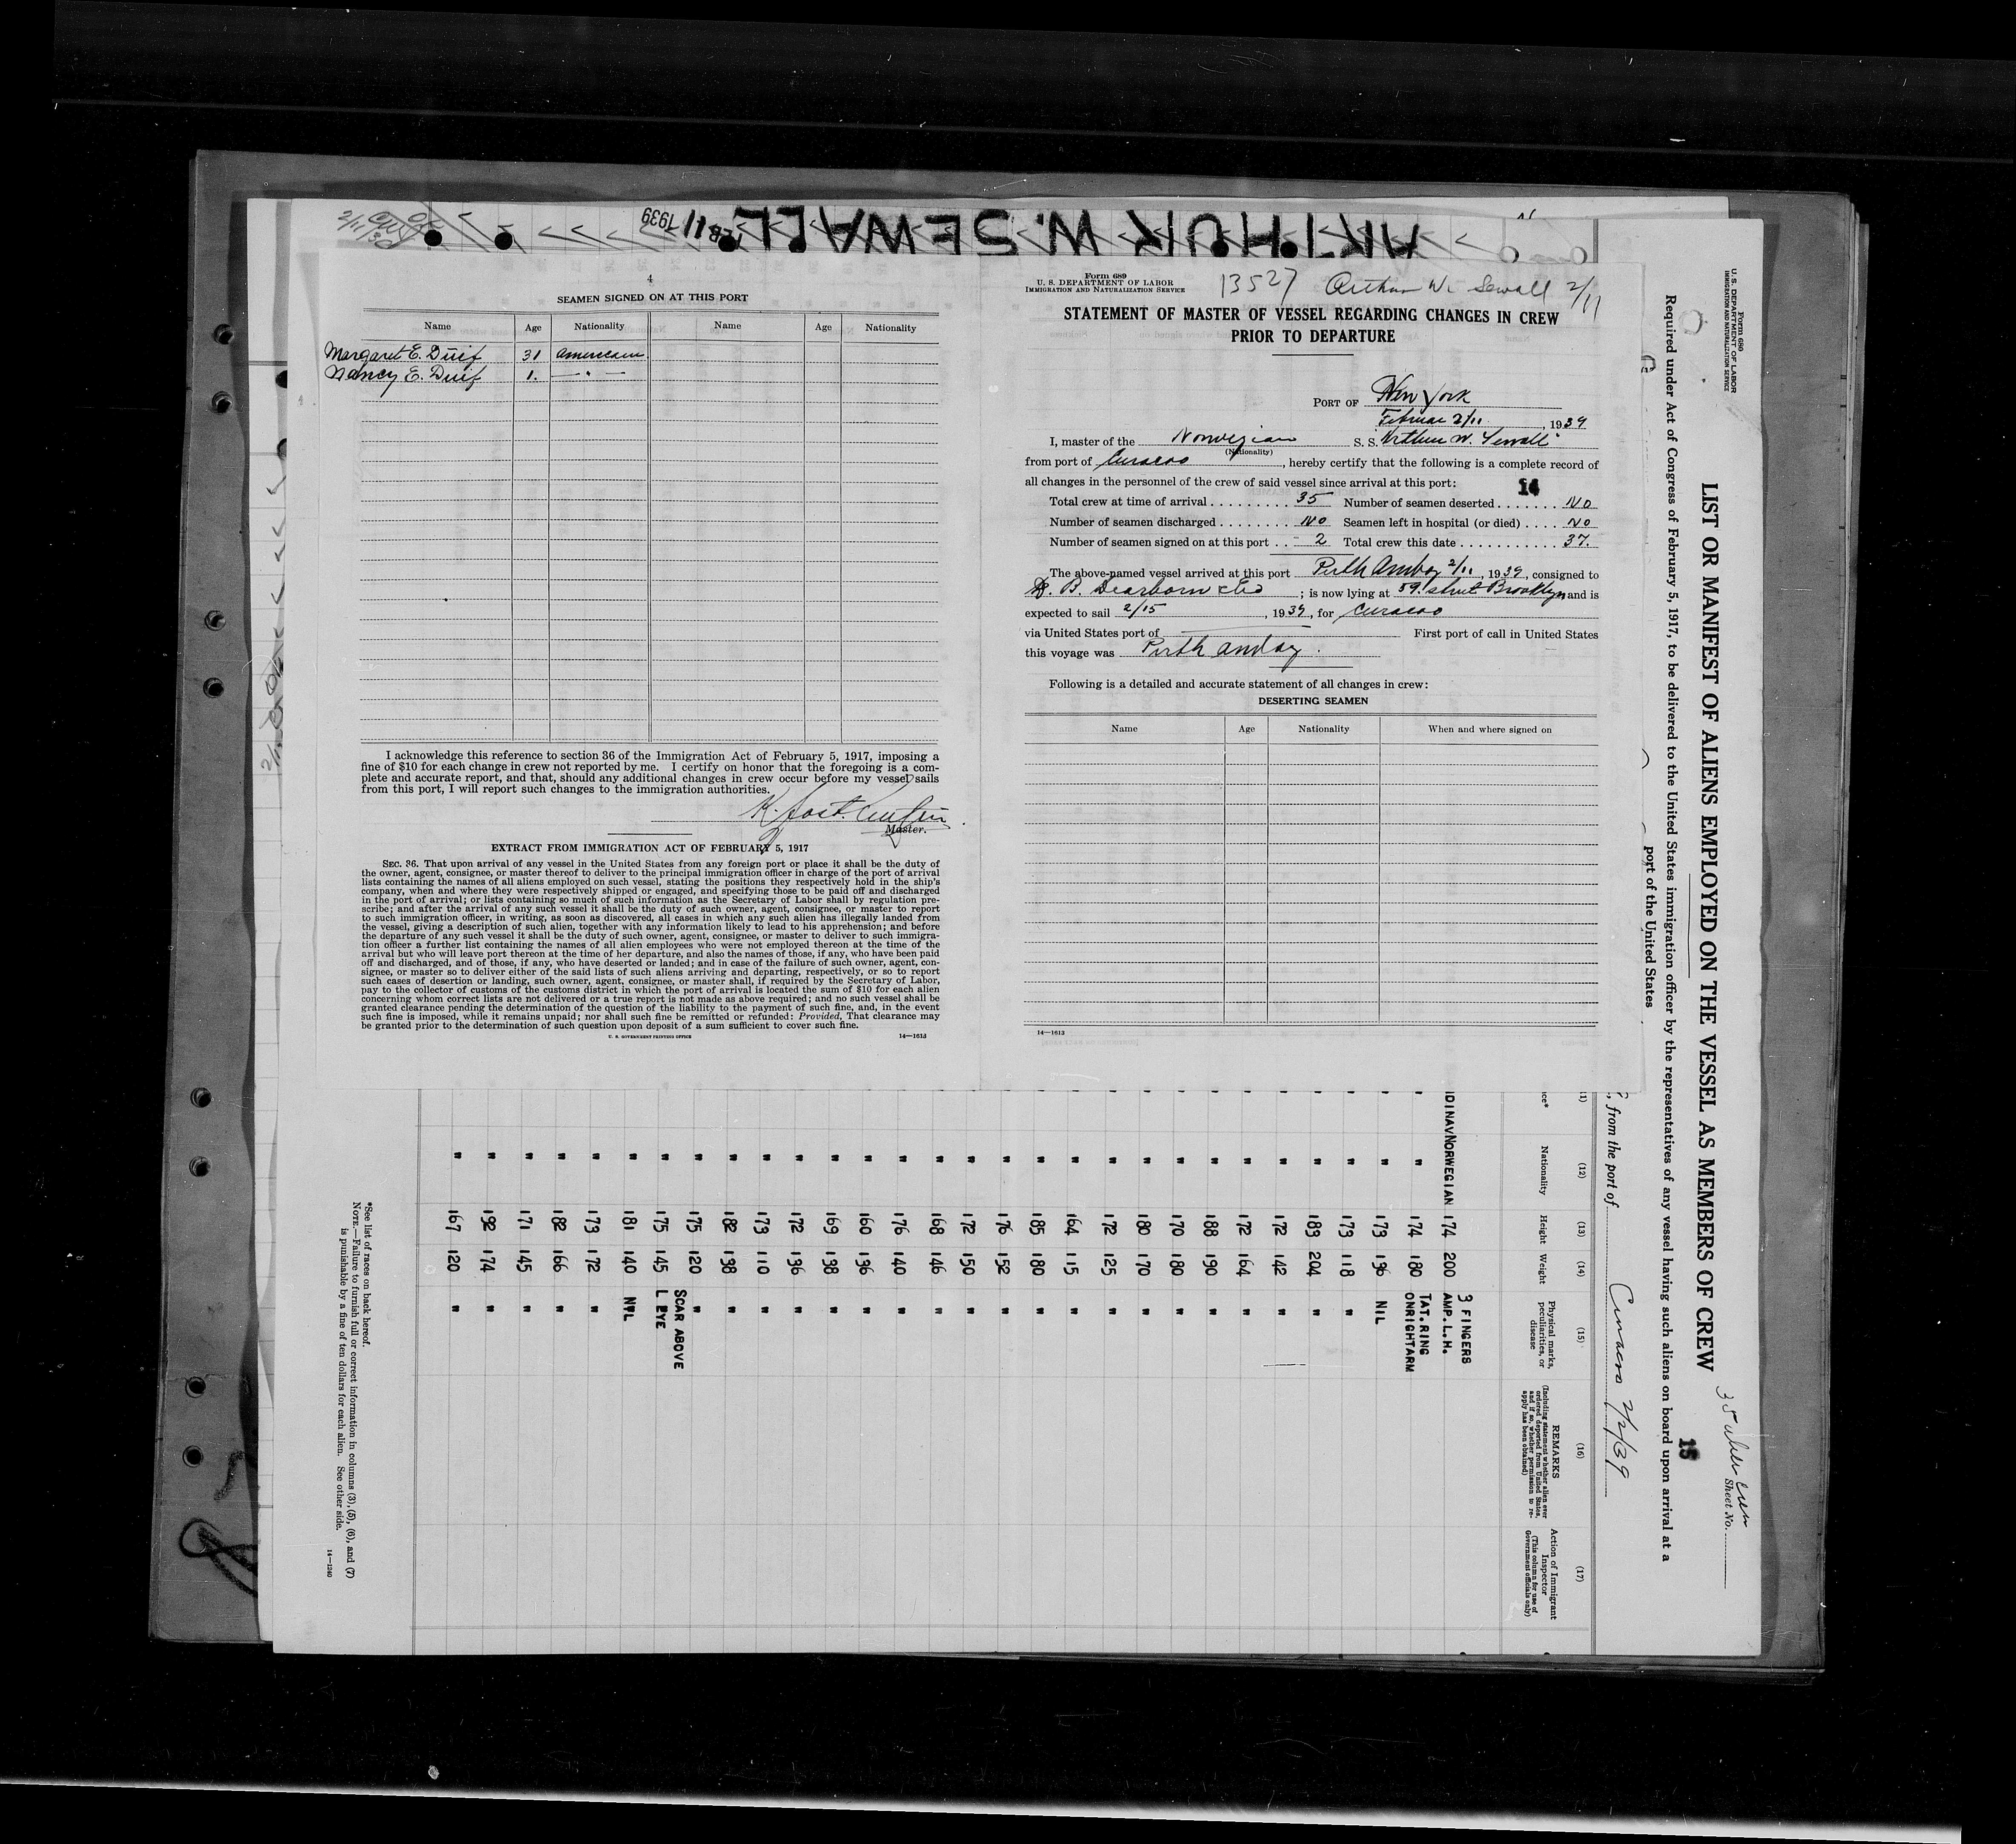 ARTHUR W. SEWALL FEB 11 1939
4
SEAMEN SIGNED ON AT THIS PORT
Name Age Nationality Name Age Nationality
Margaret E. Duif 31 american
Nancy E. Duif 1. — " —
I acknowledge this reference to section 36 of the Immigration Act of February 5, 1917, imposing a
fine of $10 for each change in crew not reported by me. I certify on honor that the foregoing is a com-
plete and accurate report, and that, should any additional changes in crew occur before my vessel sails
from this port, I will report such changes to the immigration authorities.
Master.
EXTRACT FROM IMMIGRATION ACT OF FEBRUARY 5, 1917
SEC. 36. That upon arrival of any vessel in the United States from any foreign port or place it shall be the duty of
the owner, agent, consignee, or master thereof to deliver to the principal immigration officer in charge of the port of arrival
lists containing the names of all aliens employed on such vessel, stating the positions they respectively hold in the ship's
company, when and where they were respectively shipped or engaged, and specifying those to be paid off and discharged
in the port of arrival; or lists containing so much of such information as the Secretary of Labor shall by regulation pre-
scribe; and after the arrival of any such vessel it shall be the duty of such owner, agent, consignee, or master to report
to such immigration officer, in writing, as soon as discovered, all cases in which any such alien has illegally landed from
the vessel, giving a description of such alien, together with any information likely to lead to his apprehension; and before
the departure of any such vessel it shall be the duty of such owner, agent, consignee, or master to deliver to such immigra-
tion officer a further list containing the names of all alien employees who were not employed thereon at the time of the
arrival but who will leave port thereon at the time of her departure, and also the names of those, if any, who have been paid
off and discharged, and of those, if any, who have deserted or landed; and in case of the failure of such owner, agent, con-
signee, or master so to deliver either of the said lists of such aliens arriving and departing, respectively, or so to report
such cases of desertion or landing, such owner, agent, consignee, or master shall, if required by the Secretary of Labor,
pay to the collector of customs of the customs district in which the port of arrival is located the sum of $10 for each alien
concerning whom correct lists are not delivered or a true report is not made as above required; and no such vessel shall be
granted clearance pending the determination of the question of the liability to the payment of such fine, and, in the event
such fine is imposed, while it remains unpaid; nor shall such fine be remitted or refunded: Provided, That clearance may
be granted prior to the determination of such question upon deposit of a sum sufficient to cover such fine.
U. S. GOVERNMENT PRINTING OFFICE 14—1613
Form 689
U. S. DEPARTMENT OF LABOR
IMMIGRATION AND NATURALIZATION SERVICE
13527 Arthur W. Sewall 2/11
STATEMENT OF MASTER OF VESSEL REGARDING CHANGES IN CREW
PRIOR TO DEPARTURE
PORT OF New York
2/11, 1939
I, master of the Norwegian S. S. Arthur W. Sewall
(Nationality)
from port of Curacao, hereby certify that the following is a complete record of
all changes in the personnel of the crew of said vessel since arrival at this port:
14
Total crew at time of arrival 35 Number of seamen deserted No
Number of seamen discharged No Seamen left in hospital (or died) No
Number of seamen signed on at this port 2 Total crew this date 37.
The above-named vessel arrived at this port Perth Amboy 2/11, 1939, consigned to
D. B. Dearborn & Co; is now lying at 59. street Brooklyn and is
expected to sail 2/15, 1939, for Curacao
via United States port of — First port of call in United States
this voyage was Perth Amboy.
Following is a detailed and accurate statement of all changes in crew:
DESERTING SEAMEN
Name Age Nationality When and where signed on
14—1613
Form 680
U. S. DEPARTMENT OF LABOR
IMMIGRATION AND NATURALIZATION SERVICE
Sheet No.
15
LIST OR MANIFEST OF ALIENS EMPLOYED ON THE VESSEL AS MEMBERS OF CREW
Required under Act of Congress of February 5, 1917, to be delivered to the United States immigration officer by the representatives of any vessel having such aliens on board upon arrival at a
port of the United States
, from the port of Curacao 2/2/39
(12) (13) (14) (15) (16) (17)
Nationality Height Weight Physical marks, peculiarities, or disease REMARKS (Including statement whether alien ever ordered deported from United States, and if so, whether permission to re-apply has been obtained) Action of Immigrant Inspector (This column for use of Government officials only)
DINAV NORWEGIAN 174 200 3 FINGERS AMP.L.H.
" 174 180 TAT.RING ONRIGHTARM
" 173 136 NIL
" 173 118 "
" 183 204 "
" 172 142 "
" 172 164 "
" 188 190 "
" 170 180 "
" 180 170 "
" 172 125 "
" 164 115 "
" 185 180 "
" 176 152 "
" 172 150 "
" 168 146 "
" 176 140 "
" 160 136 "
" 169 138 "
" 172 136 "
" 173 110 "
" 182 138 "
" 175 120 "
" 175 145 SCAR ABOVE L EYE
" 181 140 NIL
" 173 172 "
" 182 166 "
" 171 145 "
" 192 174 "
" 167 120 "
*See list of races on back hereof.
NOTE.—Failure to furnish full or correct information in columns (3), (5), (6), and (7)
is punishable by a fine of ten dollars for each alien. See other side.
14—1240